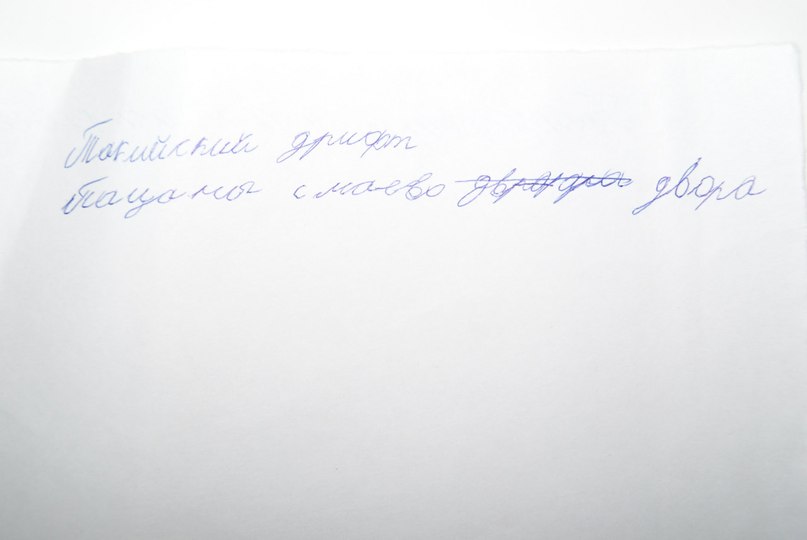 Токийский дрифт
Пацаны с маево двора